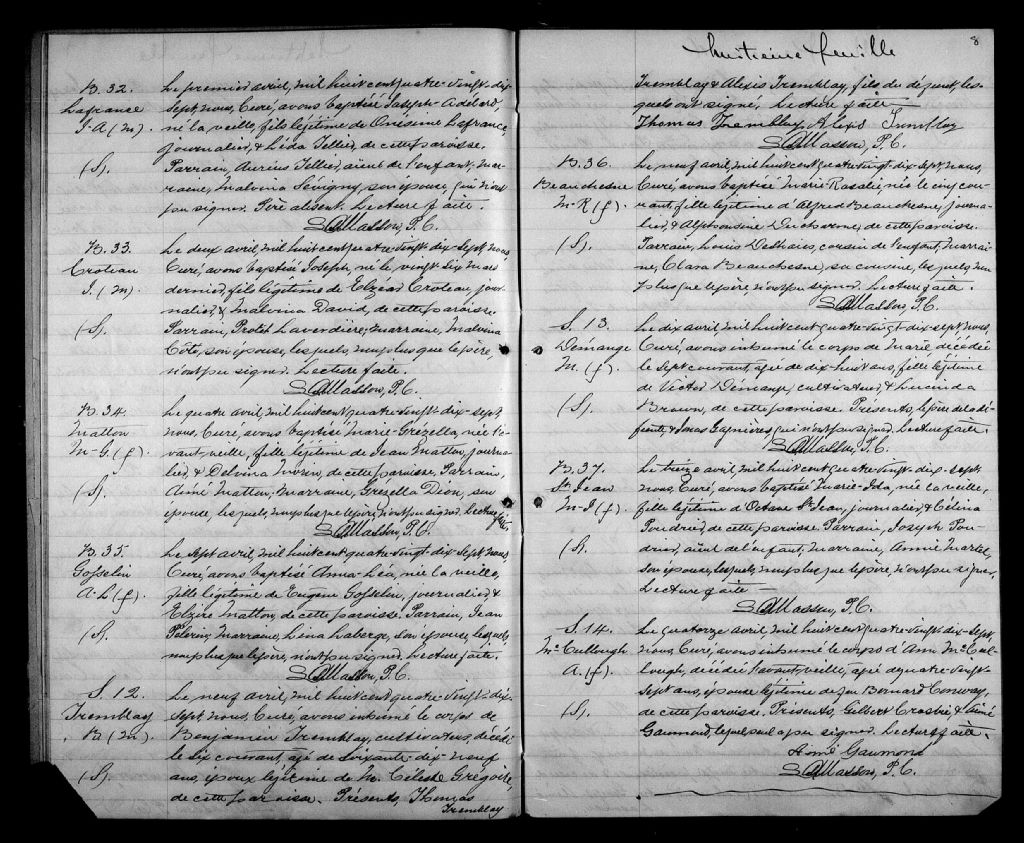 B. 32.
Lafrance
J-A (m).
(S).
Le premier avril, mil huit cent quatre-vingt-dix-
sept, nous, Curé, avons baptisé Joseph-Adélard,
né la veille, fils légitime de Onésime Lafrance,
journalier, & Léda Tellier, de cette paroisse.
Parrain, Aurius Tellier, aïeul de l'enfant, mar-
raine, Malvina Sévigny, son épouse, qui n'ont
pu signer. Père absent. Lecture faite.
Masson, P. C.
B. 33
Croteau
J. (m)
(S).
Le deux avril, mil huit cent quatre-vingt-dix-sept, nous
Curé, avons baptisé Joseph, né le vingt-six mars
dernier, fils légitime de Elzéar Croteau, jour-
nalier, & Malvina David, de cette paroisse.
Parrain, Laverdière, marraine, Malvina
Côté, son épouse, lesquels, non plus que le père,
n'ont pu signer. Lecture faite.
Masson, P. C.
B. 34
Matton
M-G. (f)
(S).
Le quatre avril, mil huit cent quatre-vingt-dix-sept,
nous, Curé, avons baptisé Marie-Grézella, née l'a-
vant-veille, fille légitime de Jean Matton, journa-
lier, & Delvina Morin, de cette paroisse. Parrain,
Aimé Matton, marraine, Grézella Dion, son
épouse, lesquels, non plus que le père, n'ont pu signer. Lecture
faite.
Masson, P. C.
B. 35.
Gosselin
A-L (f)
(S).
Le sept avril, mil huit cent quatre-vingt-dix-sept, nous,
Curé, avons baptisé Anna-Léa, née la veille,
fille légitime de Eugène Gosselin, journalier, &
Elzire Matton, de cette paroisse. Parrain, Jean
marraine, Léna Laberge, son épouse, lesquels,
non plus que le père, n'ont pu signer. Lecture faite.
Masson, P. C.
S. 12.
Tremblay
B (m)
(S)
Le neuf avril, mil huit cent quatre-vingt-dix-
sept, nous, Curé, avons inhumé le corps de
Benjamin Tremblay, cultivateur, décédé
le six courant, agé de soixante-dix-neuf
ans, époux légitime de M. Céleste Grégoire,
de cette paroisse. Présents, Thomas
Tremblay
8
huitième feuille
Tremblay & Alexis Tremblay, fils de défunt, les-
quels ont signé. Lecture faite
Thomas Tremblay Alexis Tremblay
Masson, P. C.
B. 36
Beauchesne
M-R (f).
(S).
Le neuf avril, mil huit cent quatre-vingt-dix-sept, nous,
Curé, avons baptisé Marie-Rosalie, née le cinq cou-
rant, fille légitime d'Alfred Beauchesne, journa-
lier, & Alphonsine Ducharme, de cette paroisse.
Parrain, Louis Deshaies, cousin de l'enfant, marrai-
ne, Clara Beauchesne, sa cousine, lesquels, non
plus que le père, n'ont pu signer. Lecture faite.
Masson, P. C.
S. 13.
Démange
M. (f)
(S).
Le dix avril, mil huit cent quatre-vingt-dix-sept, nous,
Curé, avons inhumé le corps de Marie, décédée
le sept courant, agée de dix-huit ans, fille légitime
de Victor Démange, cultivateur, & Lucinda
Brown, de cette paroisse. Présents, le père de la dé-
funte, & Jonas Gagnières, qui n'ont pu signer. Lecture faite.
Masson, P. C.
B. 37.
St. Jean
M-I (f)
(S).
Le treize avril, mil huit cent quatre-vingt-dix-sept
nous, Curé, avons baptisé Marie-Ida, née la veille,
fille légitime d'Octave St. Jean, journalier, & Célina
Poudrier, de cette paroisse. Parrain, Joseph Pou-
drier, aïeul de l'enfant, marraine, Annie Martel,
son épouse, lesquels, non plus que le père, n'ont pu signer.
Lecture faite
Masson, P. C.
S. 14.
Mc Cullough
A. (f).
(S).
Le quatorze avril, mil huit cent quatre-vingt-dix-sept
nous, Curé, avons inhumé le corps d'Ann Mc Cul-
lough, décédée l'avant-veille, agée de quatre-vingt-
sept ans, épouse légitime de feu Bernard Conway,
de cette paroisse. Présents, Gilbert Crosbie, & Aimé
Gaumond, lequel seul a pu signer. Lecture faite.
Aimé Gaumond
Masson, P. C.